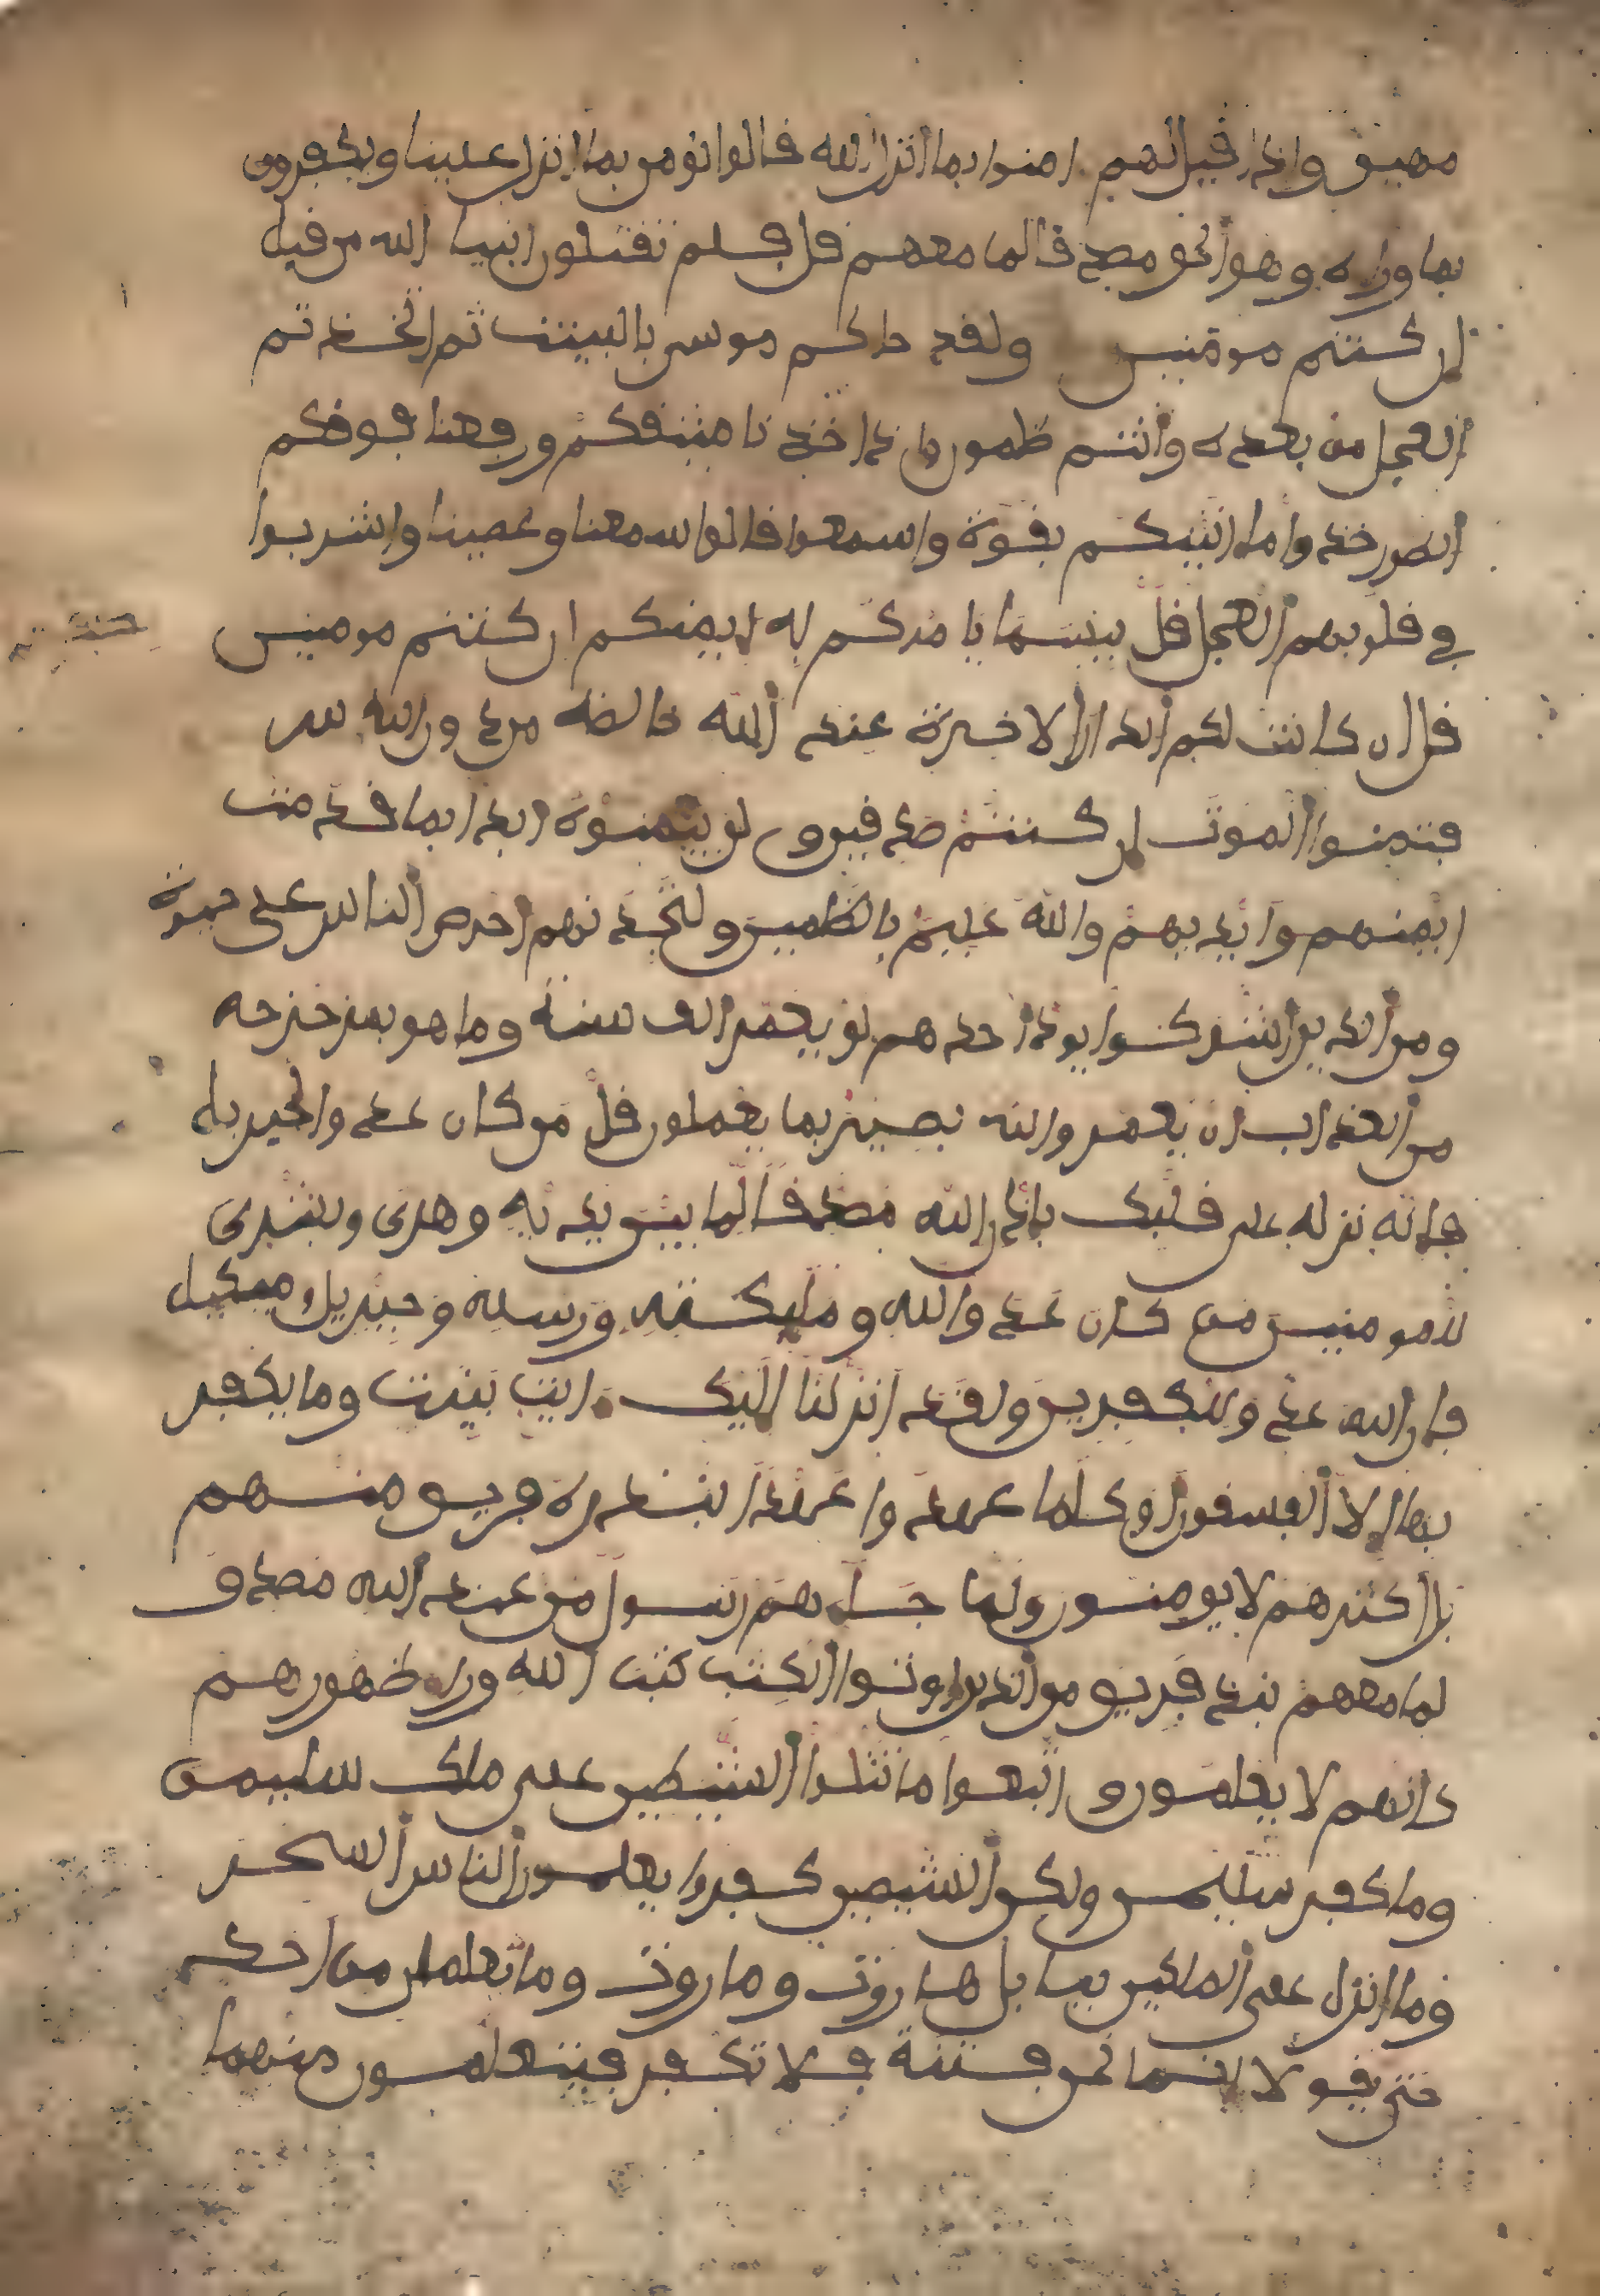 مهين وإذا قيل لهم امنوا بما أنزل الله قالوا نومن بما انزل علينا ويكفرون
بما وراه وهو الحق مصدقا لما معهم قل فلم تقتلون انبيا الله من قبل
إن كنتم مومنين ولقد جاكم موسى بالبينت ثم اتخذتم
العجل من بعده وأنتم ظلمون وإذ اخذنا ميثقكم ورفعنا فوقكم
الطور خذوا ما اتينكم بقوة واسمعوا قالوا سمعنا وعصينا واشربوا
في قلوبهم العجل قل بيسما يامركم به إيمنكم ان كنتم مومنين
قل ان كانت لكم الدار الاخرة عند الله خالصة من دون الناس
فتمنوا الموت إن كنتم صدقين ولن يتمنوه ابدا بما قدمت
ايديهم والله عليم بالظلمين ولتجدنهم احرص الناس على حيوة
ومن الذين أشركوا يود أحدهم لو يعمر الف سنة وما هو بمزحزحه
من العذاب ان يعمر والله بصير بما يعملون قل من كان عدوا لجبريل
فإنه نزله على قلبك بإذن الله مصدقا لما بين يديه وهدى وبشرى
للمومنين من كان عدوا لله ومليكته ورسله وجبريل وميكيل
فإن الله عدو للكفرين ولقد أنزلنا إليك ءايت بينت وما يكفر
بها إلا الفسقون أوكلما عهدوا عهدا نبذه فريق منهم
بل أكثرهم لا يومنون ولما جاهم رسول من عند الله مصدق
لما معهم نبذ فريق من الذين اوتوا الكتب كتب الله ورا ظهورهم
كانهم لا يعلمون واتبعوا ما تتلوا الشيطين على ملك سليمن
وما كفر سليمن ولكن الشيطين كفروا يعلمون الناس السحر
وما انزل على الملكين ببابل هاروت وماروت وما يعلمان من احد
حتى يقولا إنما نحن فتنة فلا تكفر فيتعلمون منهما